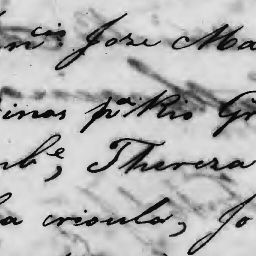 ncis Joze Ma
inas pa Rio Gr
mbe, Thereza
a crioula, Jo